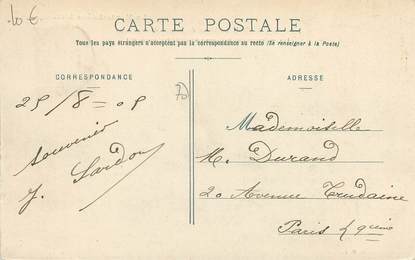 10 €
CARTE POSTALE
Tous les pays étrangers n'acceptent pas la correspondance au recto (Se renseigner à la Poste)
CORRESPONDANCE
ADRESSE
25/8=05
Souvenir
J. Sardou
70
Mademoiselle
M. Durand
20 Avenue Trudaine
Paris